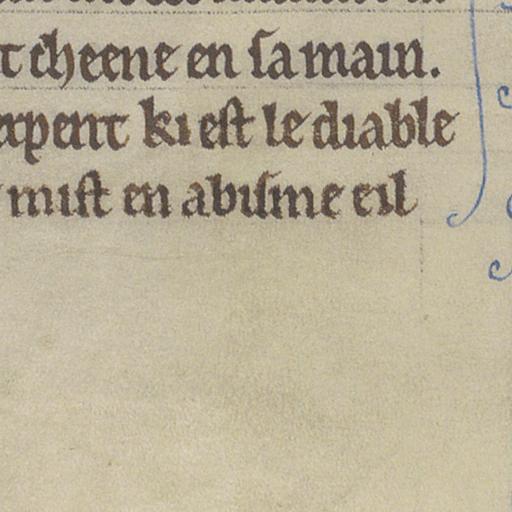 t cheene en sa main.
erpent ki est le diable
mist en abisme e il